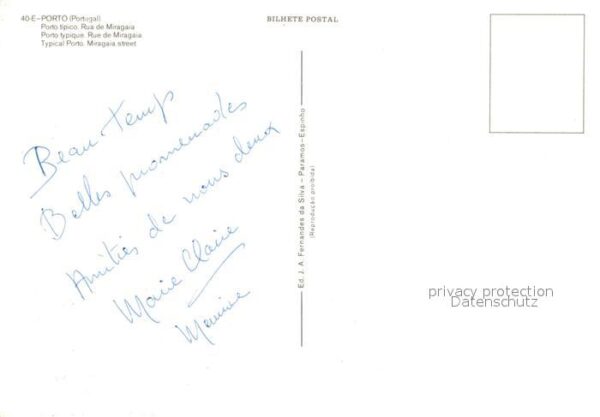 40-E-PORTO (Portugal)
Porto típico. Rua de Miragaia
Porto typique. Rue de Miragaia
Typical Porto. Miragaia street
BILHETE POSTAL
Beau temps
Belles promenades
Amitiés de nous deux
Marie Claire
Maurice
Ed. J. A. Fernandes da Silva - Paramos-Espinho
(Reprodução proibida)
privacy protection
Datenschutz